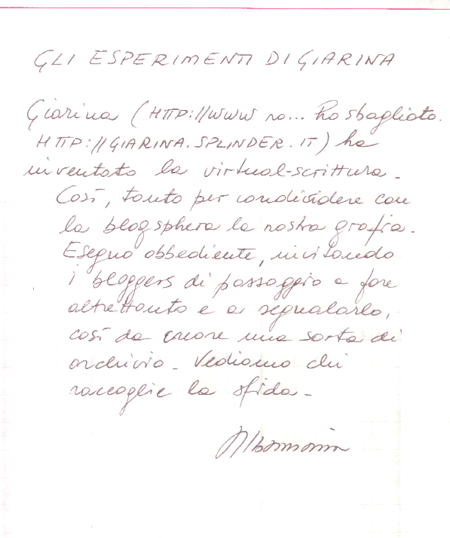 GLI ESPERIMENTI DI GIARINA
Giarina (HTTP://WWW no... Ho sbagliato.
HTTP://GIARINA.SPLINDER.IT) ha
inventato la virtual-scrittura.
Così, tanto per condividere con
la blogsphera la nostra grafia.
Eseguo obbediente, invitando
i bloggers di passaggio a fare
altrettanto e a segnalarlo,
così da creare una sorta di
archivio. Vediamo chi
raccoglie la sfida.